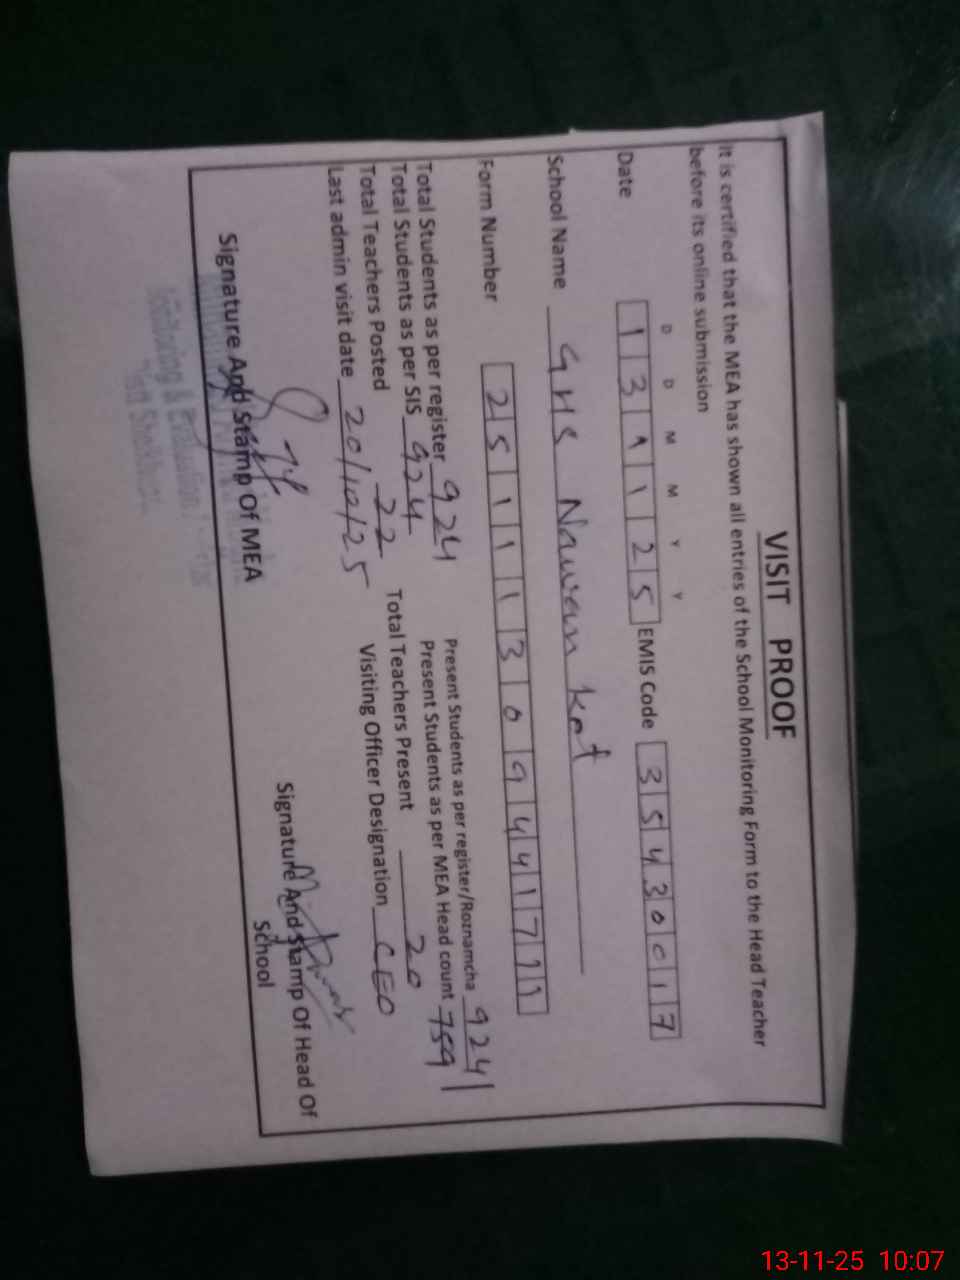 VISIT PROOF
It is certified that the MEA has shown all entries of the School Monitoring Form to the Head Teacher
before its online submission
D D M M Y Y
Date 1 3 1 1 2 5 EMIS Code 3 5 4 3 0 0 1 7
School Name GHS Nawan Kot
Form Number 2 5 1 1 1 3 0 9 4 4 1 7 1 1
Total Students as per register 924 Present Students as per register/Roznamcha 924
Total Students as per SIS 924 Present Students as per MEA Head count 759
Total Teachers Posted 22 Total Teachers Present 20
Last admin visit date 20/10/25 Visiting Officer Designation CEO
Signature And Stamp Of MEA Signature And Stamp Of Head Of
School
Monitoring & Evaluation
13-11-25 10:07